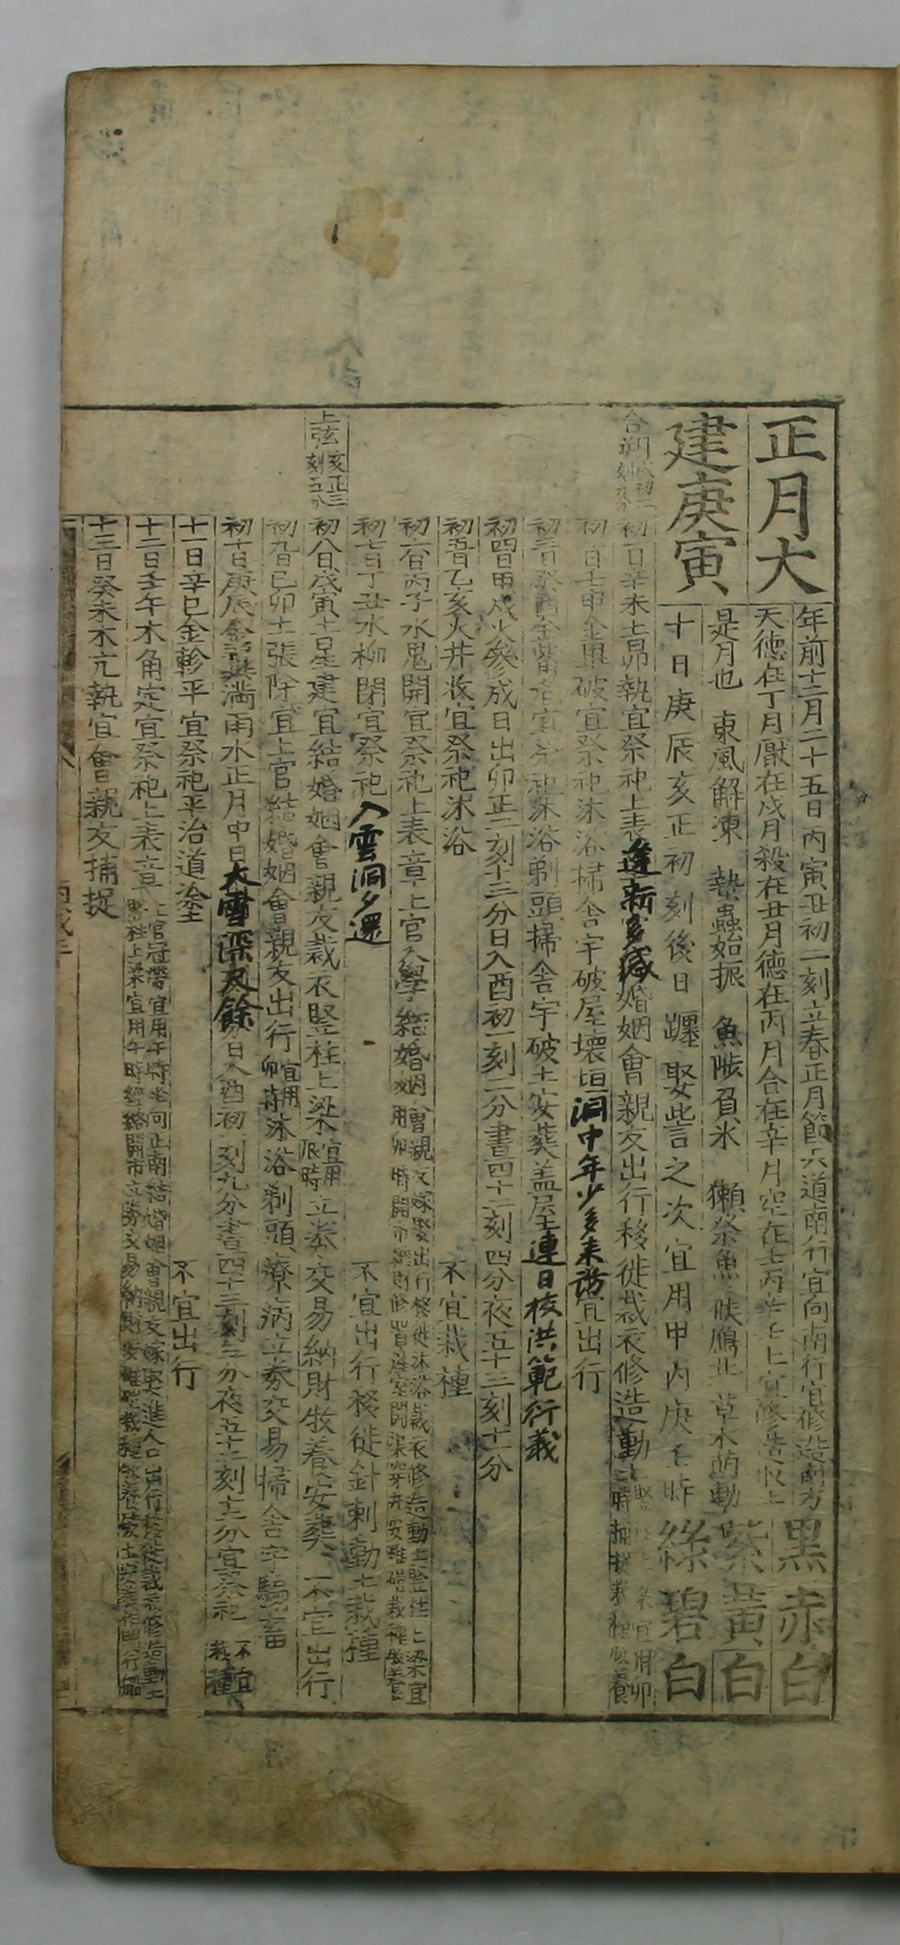 正月大
建庚寅
年前十二月二十五日丙寅丑初一刻立春正月節天道南行宜向南行宜修造南方
天德在丁月厭在戌月殺在丑月德在丙月合在辛月空在壬丙辛壬上宜修造取土
是月也 東風解凍 蟄蟲始振 魚陟負氷 獺祭魚 候鴈北 草木萌動
十日庚辰亥正初刻後日躔娶訾之次宜用甲丙庚壬時
黑赤白
紫黃白
綠碧白
合朔
初一日辛未土昴執宜祭祀上表 婚姻會親友出行移徙裁衣修造動土
逢新多感
時捕捉栽種牧養
初二日壬申金畢破宜祭祀沐浴掃舍宇破屋壞垣 宜出行
洞中年少多來
初三日癸酉金觜危宜祭祀沐浴剃頭掃舍宇破土安葬蓋屋
連日校洪範衍義
初四日甲戌火參成日出卯正二刻十三分日入酉初一刻二分晝四十二刻四分夜五十三刻十一分
初五日乙亥火井收宜祭祀沐浴 不宜栽種
初六日丙子水鬼開宜祭祀上表章上官入學結婚姻
會親友嫁娶出行移徙沐浴裁衣修造動土竪柱上梁宜
用卯時開市納財修置產室開渠穿井安碓磑栽種牧養
初七日丁丑水柳閉宜祭祀 不宜出行移徙針刺動土栽種
入雲洞夕還
上弦亥正三刻五分
初八日戊寅土星建宜結婚姻會親友裁衣竪柱上梁宜用辰時立券交易納財牧養安葬 不宜出行
初九日己卯土張除宜上官結婚姻會親友出行宜用卯時沐浴剃頭療病立券交易掃舍宇 畜
初十日庚辰金翼滿雨水正月中日 日入酉初一刻九分晝四十三刻三分夜五十二刻十二分宜祭祀 不宜栽種
大雪深尺餘
十一日辛巳金軫平宜祭祀平治道塗 不宜出行
十二日壬午木角定宜祭祀上表章
上官冠帶宜用午時坐向正南結婚姻會親友嫁娶進人口出行移徙裁衣修造動土
竪柱上梁宜用午時經絡開市立券交易納財安碓磑栽種牧養
十三日癸未木亢執宜會親友捕捉